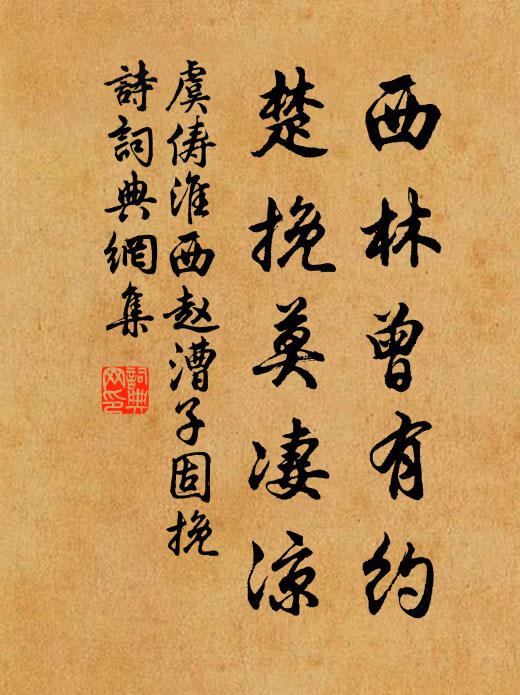 西林曾有约
楚挽莫凄凉
虞俦淮西赵漕子固挽
詩詞典網集
詞典網印